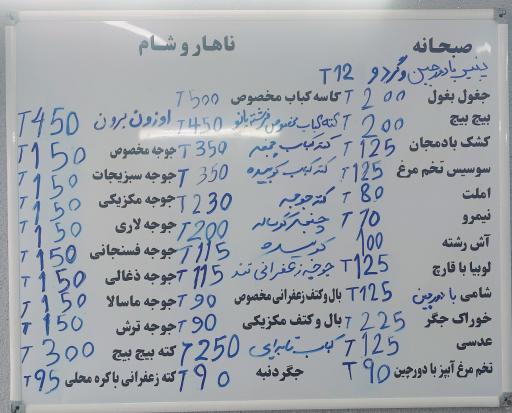 صبحانه
پنیر با دورچین و گردو T12
جغول بغول T200
بیج بیج T200
کشک بادمجان T125
سوسیس تخم مرغ T125
املت T80
نیمرو T70
آش رشته 100
لوبیا با قارچ T125
شامی با دورچین T125
خوراک جگر T225
عدسی T125
تخم مرغ آبپز با دورچین T90
ناهار و شام
کاسه کباب مخصوص T500
کته کباب مخصوص فرشته بانو T450
کته کباب چنجه T350
کته کباب کوبیده T350
کته جوجه T230
چنجه گوساله T200
کوبیده T115
جوجه زعفرانی تند T115
بال و کتف زعفرانی مخصوص T90
بال و کتف مکزیکی T90
کباب تابه ایی T250
جگر دنبه T90
اوزون برون T450
جوجه مخصوص T150
جوجه سبزیجات T150
جوجه مکزیکی T150
جوجه لاری T150
جوجه فسنجانی T150
جوجه ذغالی T150
جوجه ماسالا T150
جوجه ترش T150
کته بیج بیج T300
کته زعفرانی با کره محلی T95